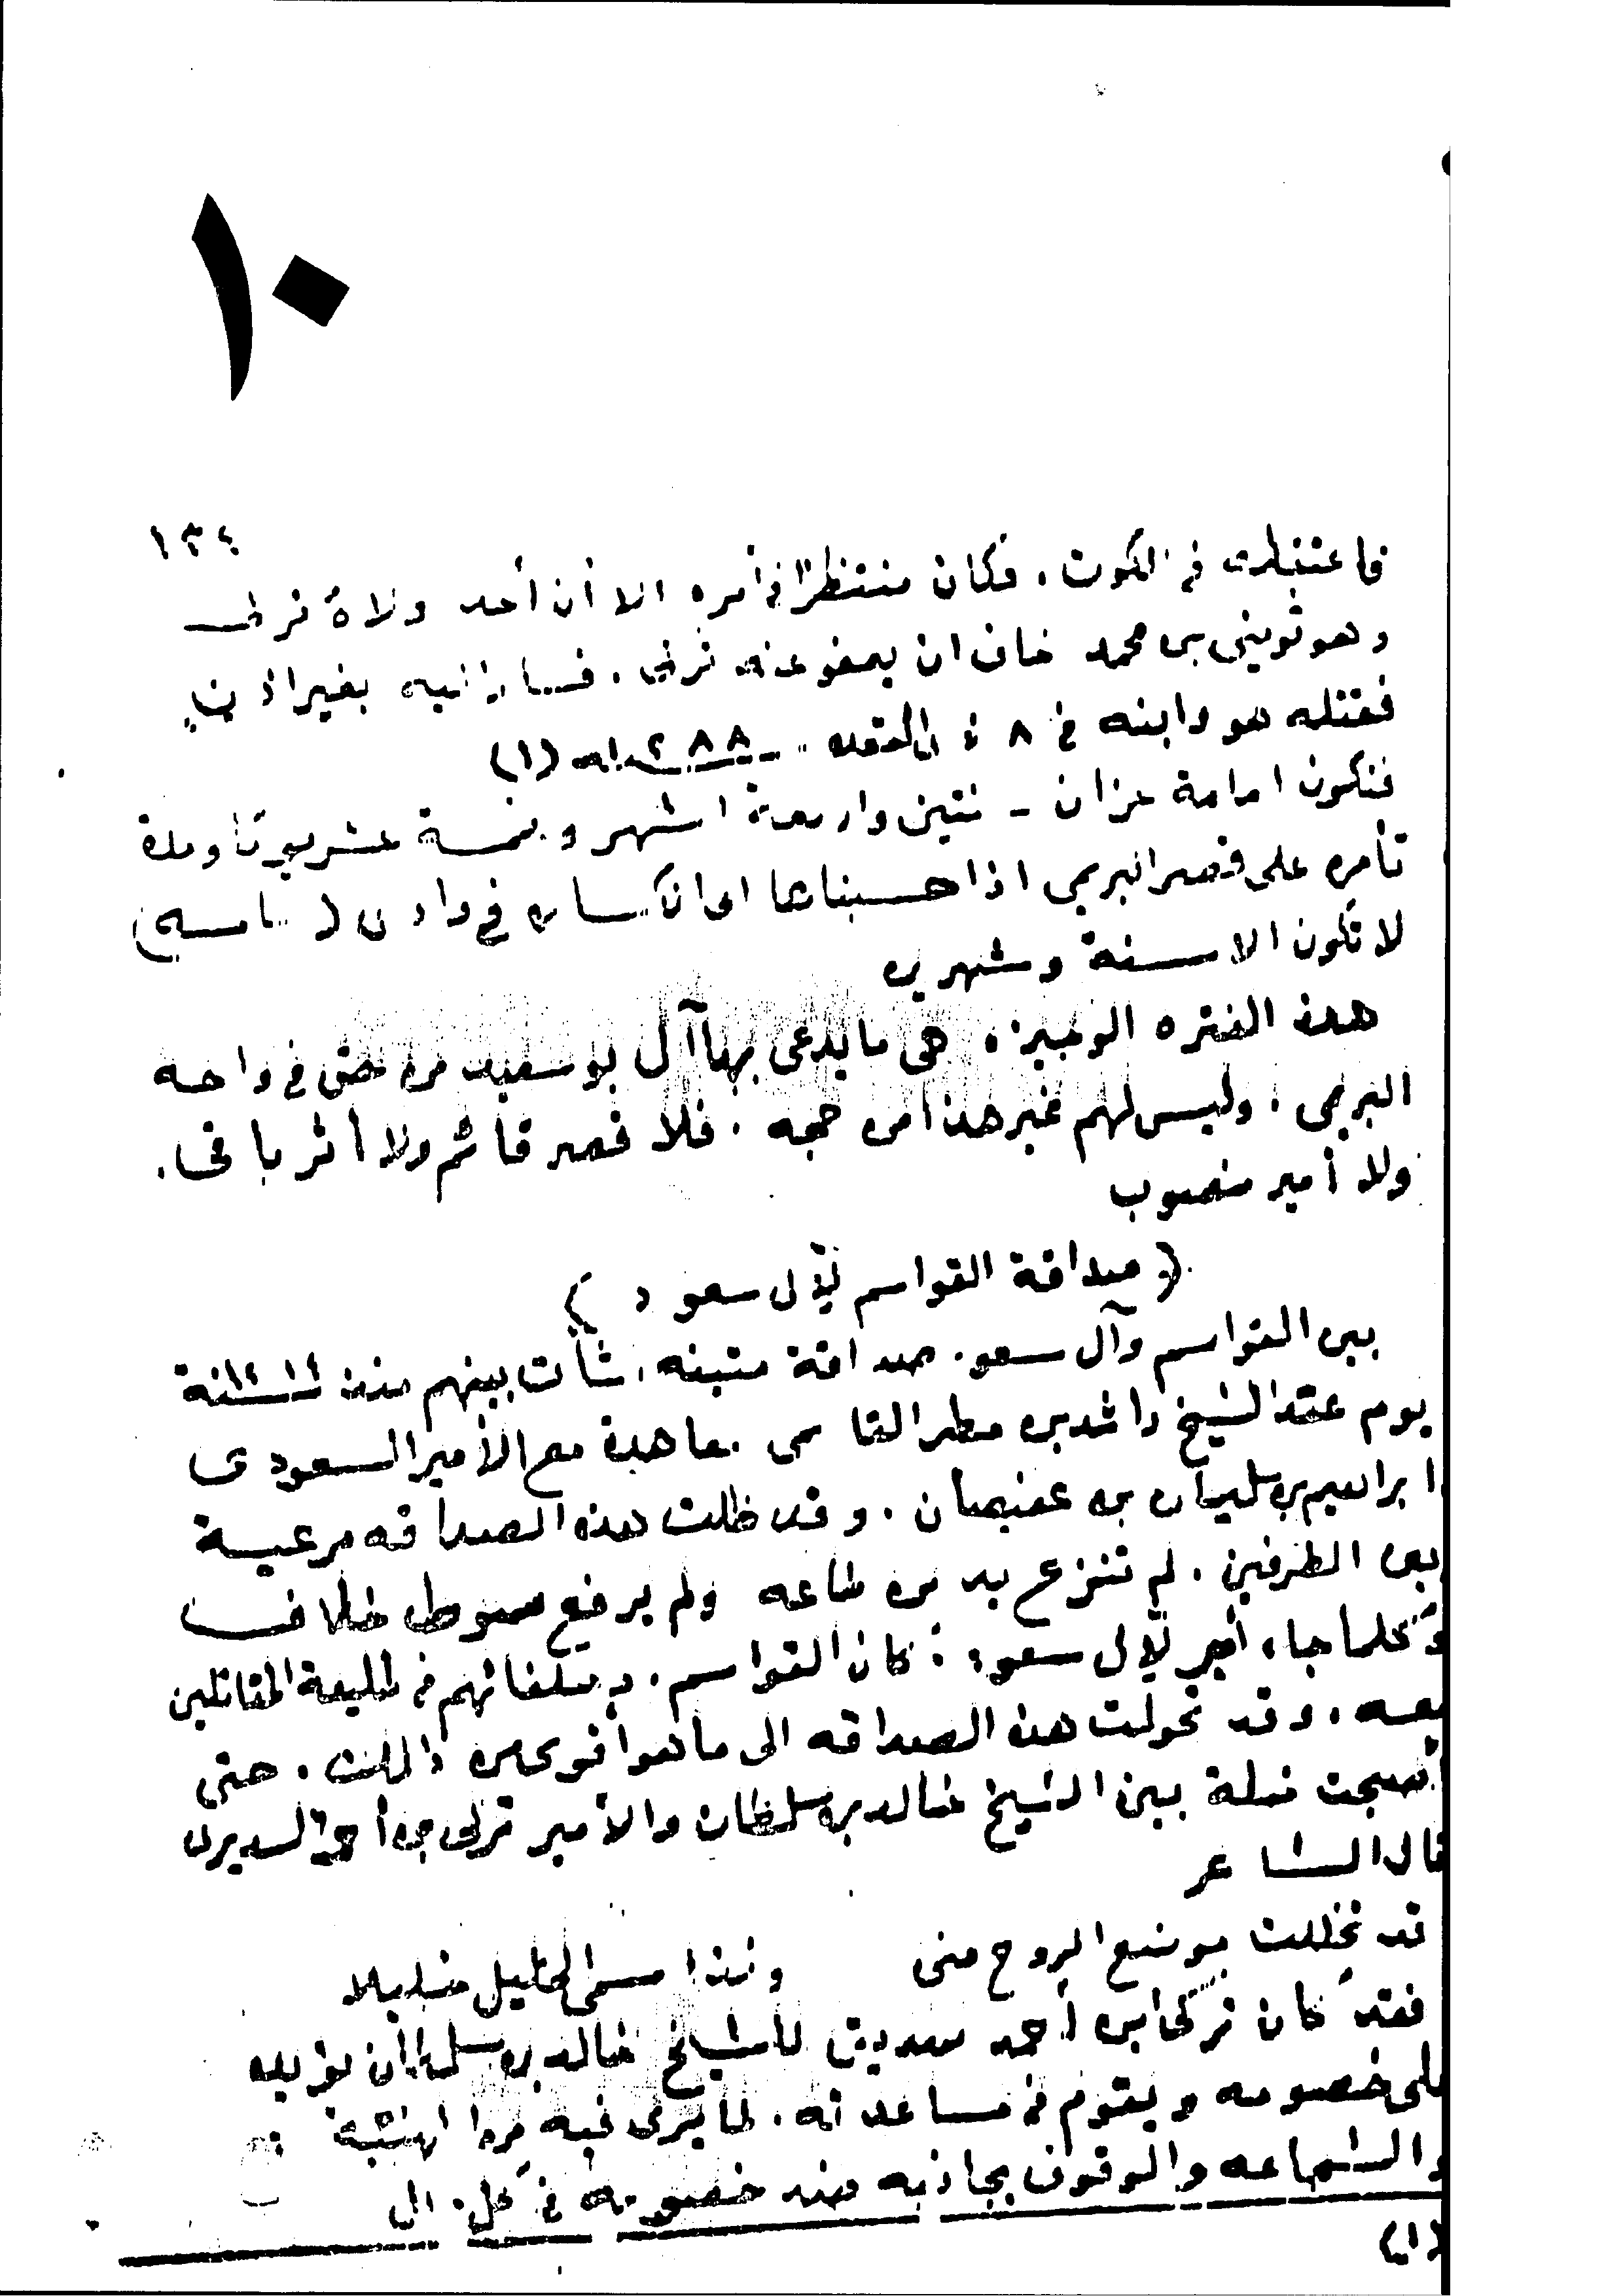 ١٠
١٣٤
فاعتقلت في الكوت . فكان منتظرًا في أمره الا أن أحد ولاة تركي
وهو ثويني بن محمد خاف ان يعفو عنه تركي . فسار اليه بغير اذن
فقتله هو وابنه في ٨ ذي القعده ١٢٨٨هـ (١)
فتكون امامة عزان سنتين واربعة اشهر وخمسة عشر يومًا ومدة
تأمره على قصر البريمي اذا حسبناها الى انكساره في وادي (         )
لا تكون الا سنة وشهرين
هذه الفتره الوجيزه هي ما يدعي بها آل بو سعيد من حق في واحه
البريمي . وليس لهم غير هذا من حجه . فلا قصر قائم ولا أثر باقي .
ولا أمير منصوب
( صداقة القواسم لآل سعود )
بين القواسم وآل سعود صداقة متينه . نشأت بينهم منذ سنة ١٢١٤
يوم عقد الشيخ راشد بن مطر القاسمي معاهدة مع الأمير السعودي
ابراهيم بن سليمان بن عفيصان . وقد ظلت هذه الصداقه مرعية
بين الطرفين . لم تنزع يد من طاعه ولم يرفع سوط خلاف
وكلما جاء أمير لآل سعود . كان القواسم . و حلفائهم في طليعة المقاتلين
معه . وقد تحولت هذه الصداقه الى ما هو أقوى من ذالك . حتى
أصبحت خلة بين الشيخ خالد بن سلطان والأمير تركي بن أحمد السديري
قال الشاعر
قد تخللت موضع الروح مني ولذا سمي الخليل خليلا
فقد كان تركي ابن أحمد صديق للشيخ خالد بن سلطان يؤيده
على خصومه ويقوم في مساعدته . لما يرى فيه من
والشجاعه والوقوف بجانبه ضد خصومه في كل
(١)